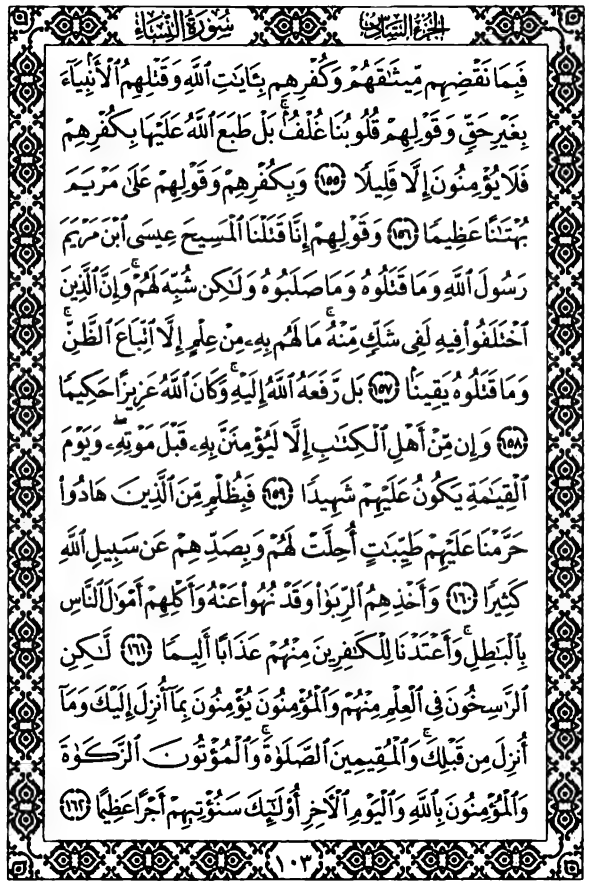 الجزء السادس
سورة النساء
فَبِمَا نَقْضِهِم مِّيثَـٰقَهُمْ وَكُفْرِهِم بِـَٔايَـٰتِ ٱللَّهِ وَقَتْلِهِمُ ٱلْأَنۢبِيَآءَ
بِغَيْرِ حَقٍّ وَقَوْلِهِمْ قُلُوبُنَا غُلْفٌۢ ۚ بَلْ طَبَعَ ٱللَّهُ عَلَيْهَا بِكُفْرِهِمْ
فَلَا يُؤْمِنُونَ إِلَّا قَلِيلًا ١٥٥ وَبِكُفْرِهِمْ وَقَوْلِهِمْ عَلَىٰ مَرْيَمَ
بُهْتَـٰنًا عَظِيمًا ١٥٦ وَقَوْلِهِمْ إِنَّا قَتَلْنَا ٱلْمَسِيحَ عِيسَى ٱبْنَ مَرْيَمَ
رَسُولَ ٱللَّهِ وَمَا قَتَلُوهُ وَمَا صَلَبُوهُ وَلَـٰكِن شُبِّهَ لَهُمْ ۚ وَإِنَّ ٱلَّذِينَ
ٱخْتَلَفُوا۟ فِيهِ لَفِى شَكٍّ مِّنْهُ ۚ مَا لَهُم بِهِۦ مِنْ عِلْمٍ إِلَّا ٱتِّبَاعَ ٱلظَّنِّ ۚ
وَمَا قَتَلُوهُ يَقِينًۢا ١٥٧ بَل رَّفَعَهُ ٱللَّهُ إِلَيْهِ ۚ وَكَانَ ٱللَّهُ عَزِيزًا حَكِيمًا
١٥٨ وَإِن مِّنْ أَهْلِ ٱلْكِتَـٰبِ إِلَّا لَيُؤْمِنَنَّ بِهِۦ قَبْلَ مَوْتِهِۦ ۖ وَيَوْمَ
ٱلْقِيَـٰمَةِ يَكُونُ عَلَيْهِمْ شَهِيدًا ١٥٩ فَبِظُلْمٍ مِّنَ ٱلَّذِينَ هَادُوا۟
حَرَّمْنَا عَلَيْهِمْ طَيِّبَـٰتٍ أُحِلَّتْ لَهُمْ وَبِصَدِّهِمْ عَن سَبِيلِ ٱللَّهِ
كَثِيرًا ١٦٠ وَأَخْذِهِمُ ٱلرِّبَوٰا۟ وَقَدْ نُهُوا۟ عَنْهُ وَأَكْلِهِمْ أَمْوَٰلَ ٱلنَّاسِ
بِٱلْبَـٰطِلِ ۚ وَأَعْتَدْنَا لِلْكَـٰفِرِينَ مِنْهُمْ عَذَابًا أَلِيمًا ١٦١ لَّـٰكِنِ
ٱلرَّٰسِخُونَ فِى ٱلْعِلْمِ مِنْهُمْ وَٱلْمُؤْمِنُونَ يُؤْمِنُونَ بِمَآ أُنزِلَ إِلَيْكَ وَمَآ
أُنزِلَ مِن قَبْلِكَ ۚ وَٱلْمُقِيمِينَ ٱلصَّلَوٰةَ ۚ وَٱلْمُؤْتُونَ ٱلزَّكَوٰةَ
وَٱلْمُؤْمِنُونَ بِٱللَّهِ وَٱلْيَوْمِ ٱلْـَٔاخِرِ أُو۟لَـٰٓئِكَ سَنُؤْتِيهِمْ أَجْرًا عَظِيمًا ١٦٢
١٠٣